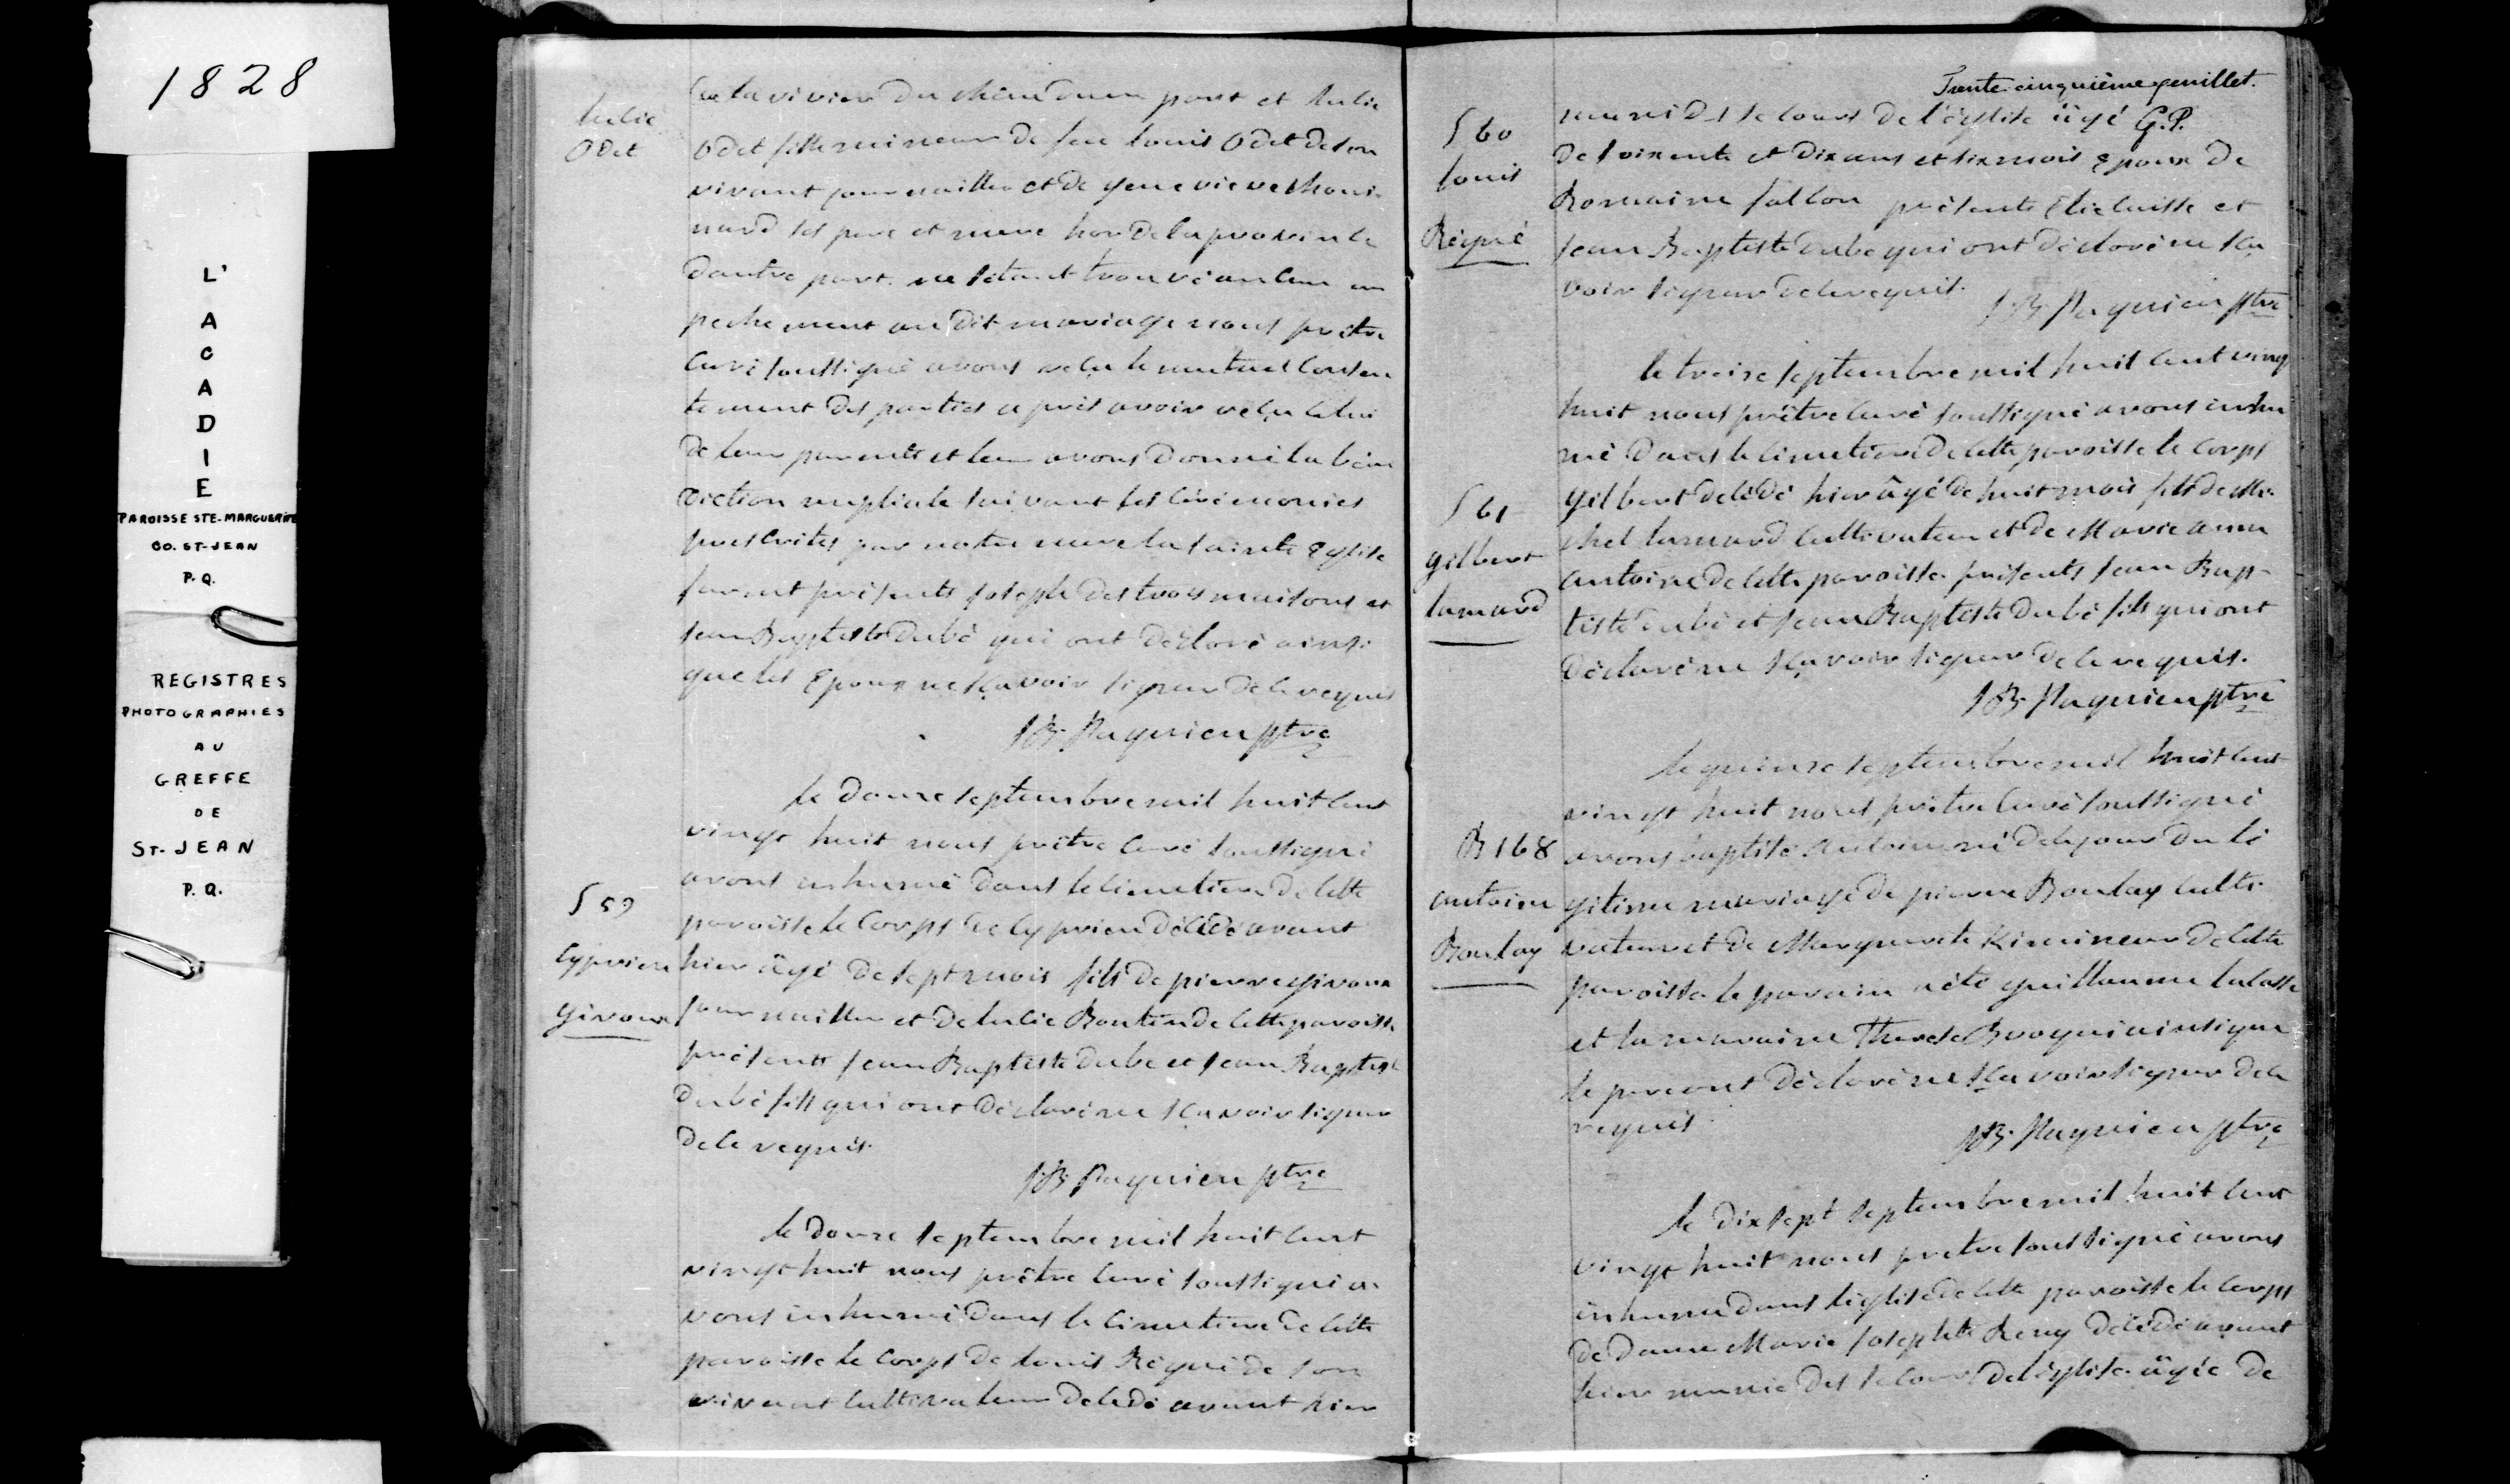 1828
L'
A
C
A
D
I
E
PAROISSE STE-MARGUERITE
CO. ST-JEAN
P.Q.
REGISTRES
PHOTOGRAPHIES
AU
GREFFE
DE
ST-JEAN
P.Q.
Julie
Odet
de la riviere du chêne d'une part et Julie
Odet fille mineure de feu Louis Odet de son
vivant journaillier et de genevieve
nard ses pere et mere hor de la province
dautre part. ne s'étant trouvé aucun em
pechement au dit mariage nous prêtre
curé soussigné avons reçu le mutuel consen
tement des parties après avoir reçu celui
de leur parents et leur avons donné la béné
diction nuptiale suivant les cérémonies
prescrites par notre mere la sainte Eglise
furent présents joseph des trois maisons et
jean Baptiste Dubé qui ont déclaré ainsi
que les Epoux ne sçavoir signer de ce requis
JB. Paquien ptre
S 59
Cyprien
Giroux
le douze septembre mil huit cent
vingt huit nous prêtre curé soussigné
avons inhumé dans le cimetiere de cette
paroisse le corps de Cyprien décédé avant
hier âgé de sept mois fils de pierre giroux
journaillier et de Julie Boutin de cette paroisse
présents jean Baptiste Dube et jean Baptiste
Dubé fils qui ont déclaré ne sçavoir signer
de ce requis.
JB. Paquien ptre
le douze septembre mil huit cent
vingt huit nous prêtre curé soussigné a
vons inhumé dans le cimetiere de cette
paroisse le corps de Louis Régné de son
vivant cultivateur décédé avant hier
Trente-cinquième feuillet.
G.P.
S 60
Louis
Régné
muni des secours de l'église âgé
de soixente et dix ans et six mois Epoux de
Romaine présents Elie et
jean Baptiste Dube qui ont déclaré ne sça
voir signer de ce requis.
JB. Paquien ptre
S 61
gilbert
lamard
le treize septembre mil huit cent ving
huit nous prêtre curé soussigné avons inhu
mé dans le cimetiere de cette paroisse le corps
gilbert décédé hier âgé de huit mois fils de Mi
chel lamard cultivateur et de Marie anne
antoine de cette paroisse présents jean Bap-
tiste Dubé et jean Baptiste Dubé fils qui ont
déclaré ne sçavoir signer de ce requis.
JB. Paquien ptre
B 168
antoine
Boulay
le quinze septembre mil huit cent
vingt huit nous prêtre curé soussigné
avons baptisé antoine né de ce jour du lé
gitime mariage de pierre Boulay culti
vateur et de Marguerite Kimineur de cette
paroisse le parain a été guillaume lalasse
et la maraine Therese ainsi que
le pere ont déclaré ne sçavoir signer de ce
requis.
JB. Paquien ptre
le dix sept septembre mil huit cent
vingt huit nous pretre soussigné avons
inhumé dans l'église de cette paroisse le corps
de dame Marie josephte Remy décédé avant
hier munie des secours de l'église âgée de